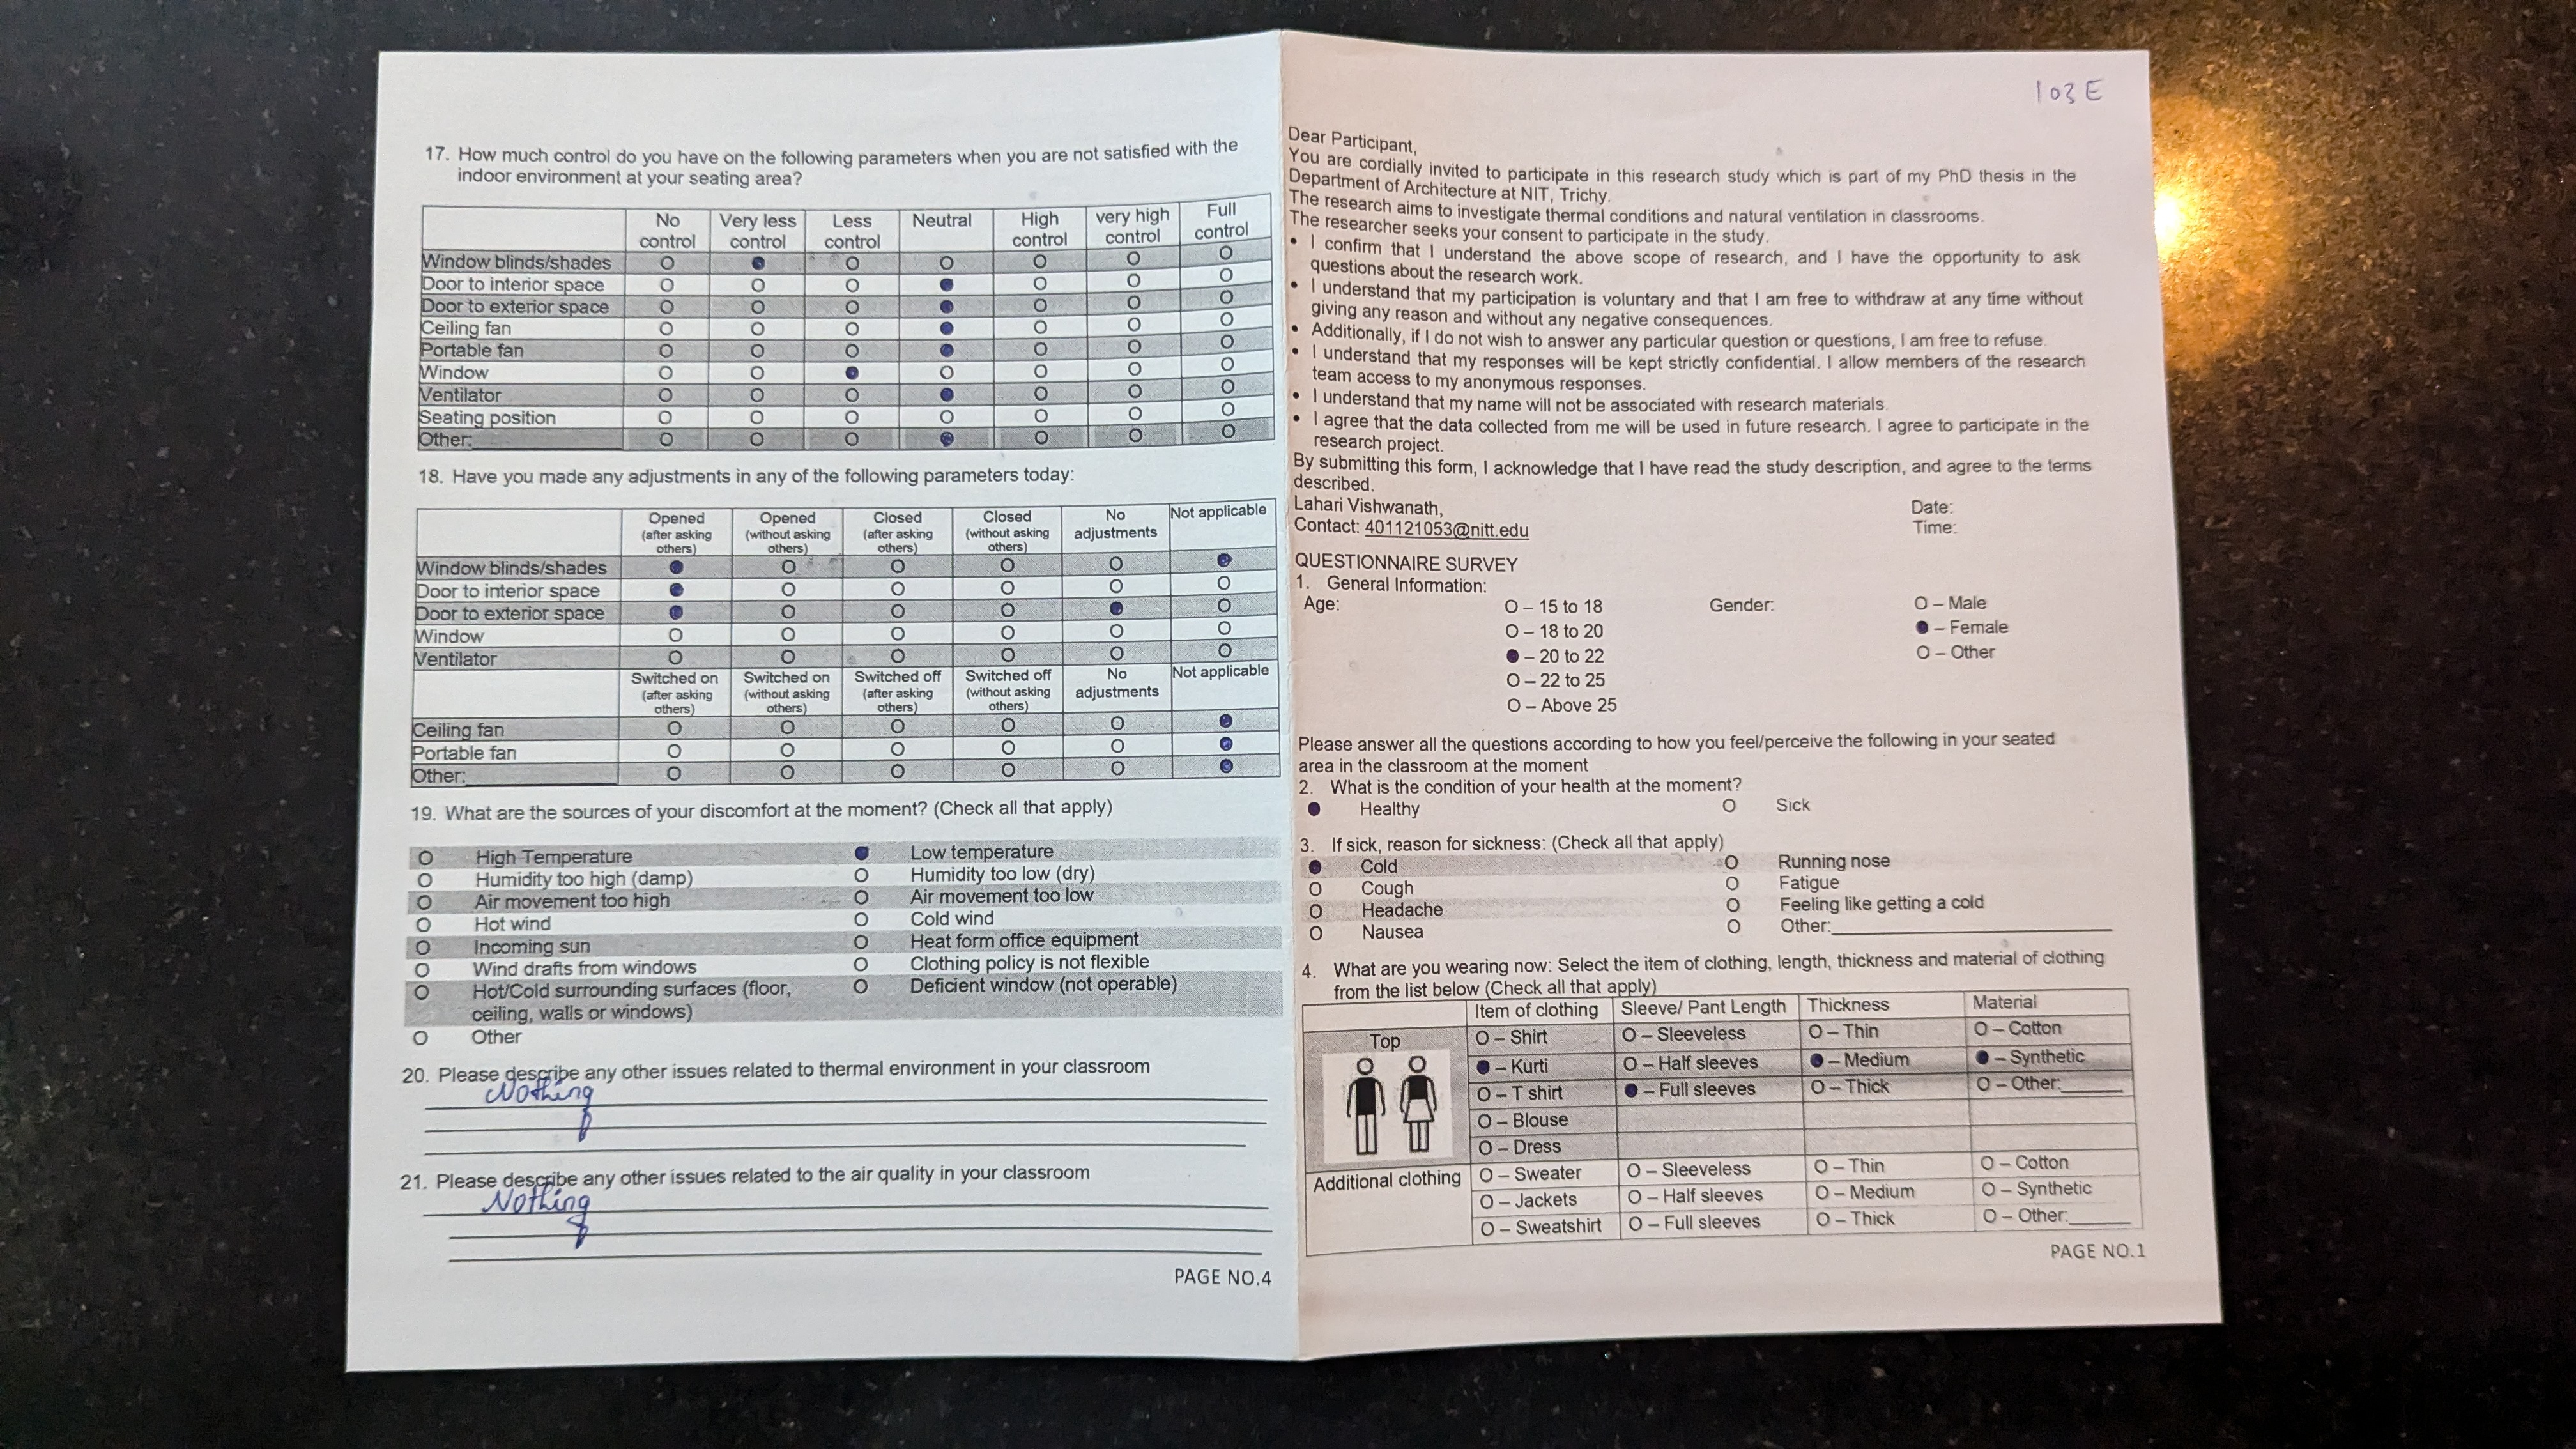 17. How much control do you have on the following parameters when you are not satisfied with the
indoor environment at your seating area?
No control Very less control Less control Neutral High control very high control Full control
Window blinds/shades O ● O O O O O
Door to interior space O O O ● O O O
Door to exterior space O O O ● O O O
Ceiling fan O O O ● O O O
Portable fan O O O ● O O O
Window O O ● O O O O
Ventilator O O O ● O O O
Seating position O O O O O O O
Other: O O O ● O O O
18. Have you made any adjustments in any of the following parameters today:
Opened (after asking others) Opened (without asking others) Closed (after asking others) Closed (without asking others) No adjustments Not applicable
Window blinds/shades ● O O O O ●
Door to interior space ● O O O O O
Door to exterior space ● O O O ● O
Window O O O O O O
Ventilator O O O O O O
Switched on (after asking others) Switched on (without asking others) Switched off (after asking others) Switched off (without asking others) No adjustments Not applicable
Ceiling fan O O O O O ●
Portable fan O O O O O ●
Other: O O O O O ●
19. What are the sources of your discomfort at the moment? (Check all that apply)
O High Temperature ● Low temperature
O Humidity too high (damp) O Humidity too low (dry)
O Air movement too high O Air movement too low
O Hot wind O Cold wind
O Incoming sun O Heat form office equipment
O Wind drafts from windows O Clothing policy is not flexible
O Hot/Cold surrounding surfaces (floor, O Deficient window (not operable)
ceiling, walls or windows)
O Other
20. Please describe any other issues related to thermal environment in your classroom
Nothing
21. Please describe any other issues related to the air quality in your classroom
Nothing
PAGE NO.4
103E
Dear Participant,
You are cordially invited to participate in this research study which is part of my PhD thesis in the
Department of Architecture at NIT, Trichy.
The research aims to investigate thermal conditions and natural ventilation in classrooms.
The researcher seeks your consent to participate in the study.
• I confirm that I understand the above scope of research, and I have the opportunity to ask
questions about the research work.
• I understand that my participation is voluntary and that I am free to withdraw at any time without
giving any reason and without any negative consequences.
• Additionally, if I do not wish to answer any particular question or questions, I am free to refuse.
• I understand that my responses will be kept strictly confidential. I allow members of the research
team access to my anonymous responses.
• I understand that my name will not be associated with research materials.
• I agree that the data collected from me will be used in future research. I agree to participate in the
research project.
By submitting this form, I acknowledge that I have read the study description, and agree to the terms
described.
Lahari Vishwanath, Date:
Contact: 401121053@nitt.edu Time:
QUESTIONNAIRE SURVEY
1. General Information:
Age: O – 15 to 18 Gender: O – Male
O – 18 to 20 ● – Female
● – 20 to 22 O – Other
O – 22 to 25
O – Above 25
Please answer all the questions according to how you feel/perceive the following in your seated
area in the classroom at the moment
2. What is the condition of your health at the moment?
● Healthy O Sick
3. If sick, reason for sickness: (Check all that apply)
● Cold O Running nose
O Cough O Fatigue
O Headache O Feeling like getting a cold
O Nausea O Other:
4. What are you wearing now: Select the item of clothing, length, thickness and material of clothing
from the list below (Check all that apply)
Item of clothing Sleeve/ Pant Length Thickness Material
Top O – Shirt O – Sleeveless O – Thin O – Cotton
● – Kurti O – Half sleeves ● – Medium ● – Synthetic
O – T shirt ● – Full sleeves O – Thick O – Other:
O – Blouse
O – Dress
Additional clothing O – Sweater O – Sleeveless O – Thin O – Cotton
O – Jackets O – Half sleeves O – Medium O – Synthetic
O – Sweatshirt O – Full sleeves O – Thick O – Other:
PAGE NO.1